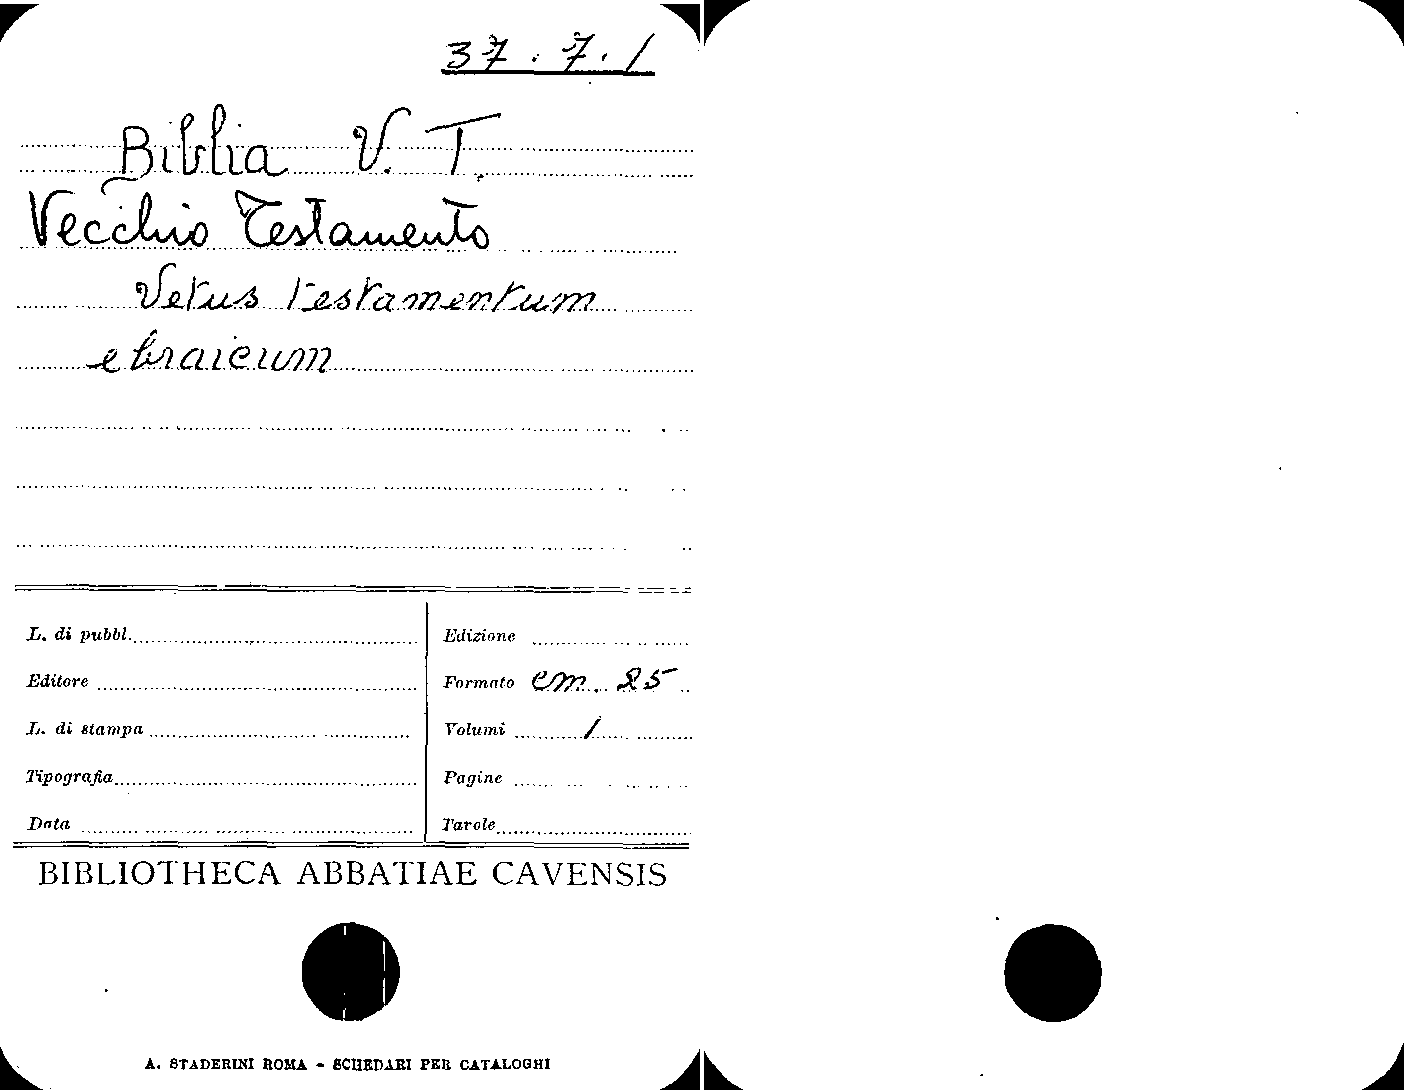 37.7.1
Biblia V. T.
Vecchio Testamento
Vetus testamentum
ebraicum
L. di pubbl.
Edizione
Editore
Formato cm. 25
L. di stampa
Volumi 1
Tipografia
Pagine
Data
Tavole
BIBLIOTHECA ABBATIAE CAVENSIS
A. STADERINI ROMA - SCHEDARI PER CATALOGHI